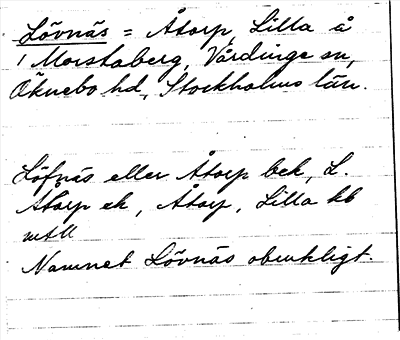 Lövnäs = Åtorp, Lilla å
/ Morstaberg, Vårdinge sn,
Öknebo hd, Stockholms län.
Löfnäs eller Åtorp bek, L.
Åtorp ek, Åtorp, Lilla kb
mtll
Namnet Lövnäs obrukligt.